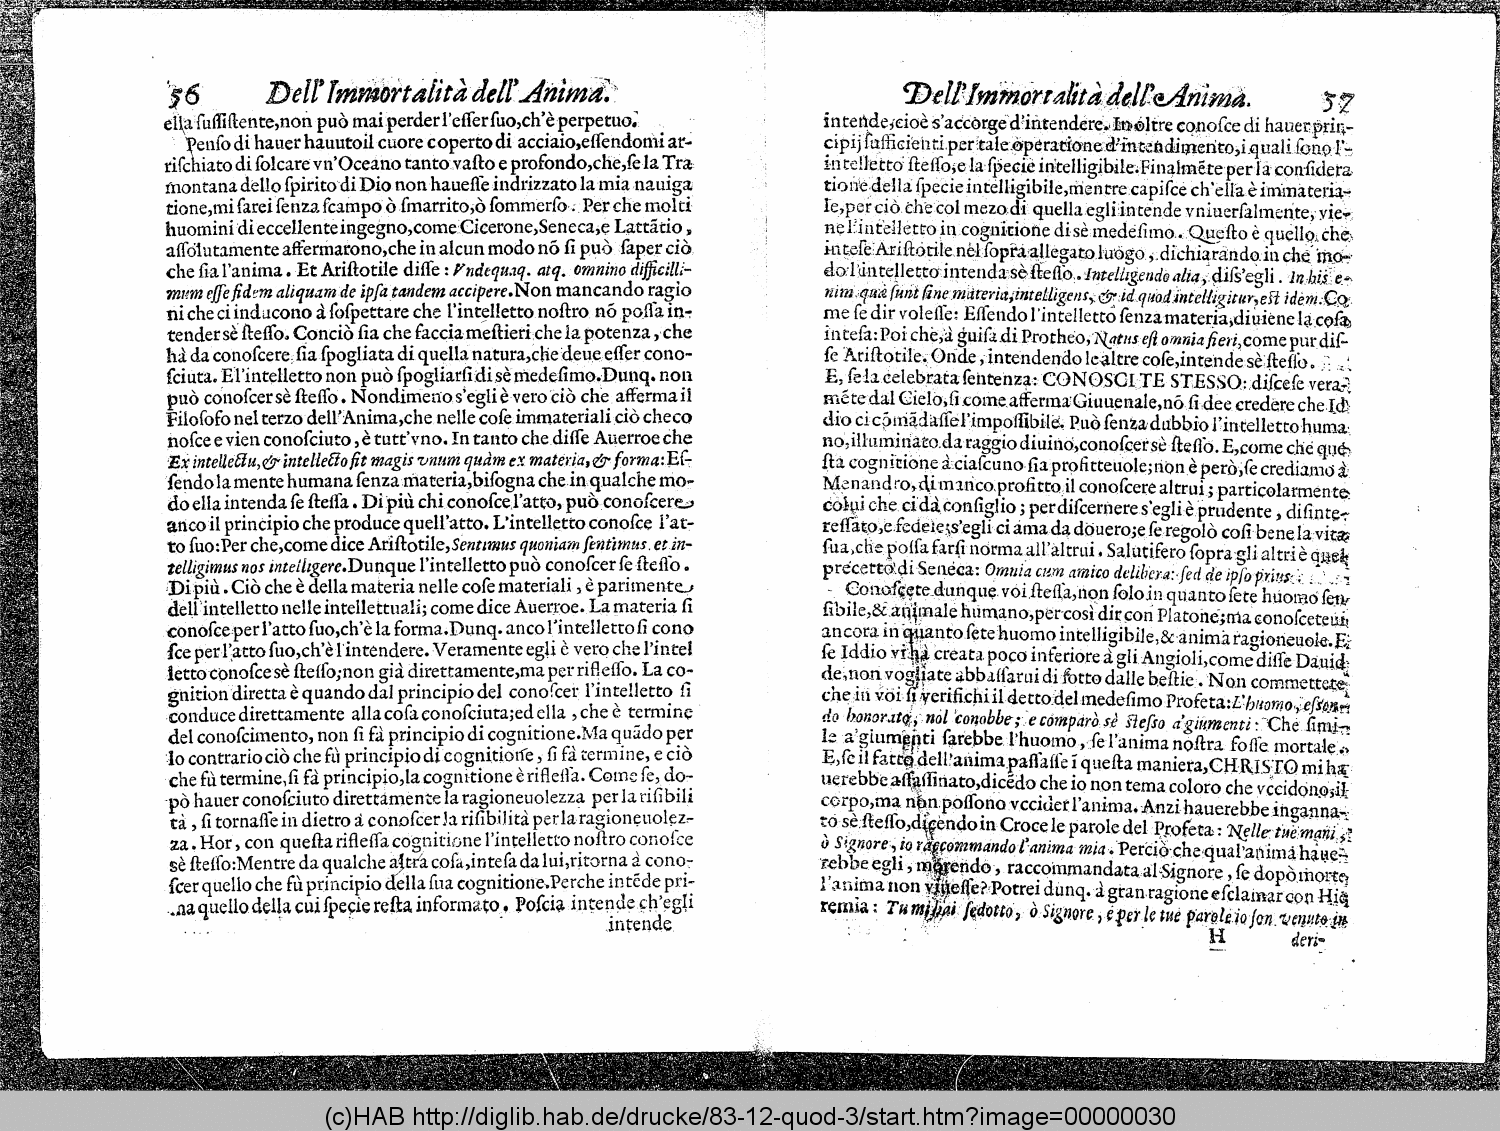 56 Dell'Immortalità dell'Anima.
ella ſuſſiſtente,non può mai perder l'eſſer ſuo,ch'è perpetuo.
Penſo di hauer hauutoil cuore coperto di acciaio,eſſendomi ar-
riſchiato di ſolcare vn'Oceano tanto vaſto e profondo,che,ſe la Tra
montana dello ſpirito di Dio non haueſſe indrizzato la mia nauiga
tione,mi ſarei ſenza ſcampo ò ſmarrito,ò ſommerſo. Per che molti
huomini di eccellente ingegno,come Cicerone,Seneca,e Lattãtio,
aſſolutamente affermarono,che in alcun modo nõ ſi può ſaper ciò
che ſia l'anima. Et Ariſtotile diſſe: Vndequaq. atq. omnino difficilli-
mum eſſe fidem aliquam de ipſa tandem accipere.Non mancando ragio
ni che ci inducono à ſoſpettare che l'intelletto noſtro nõ poſſa in-
tender sè ſteſſo. Conciò ſia che faccia meſtieri che la potenza, che
hà da conoſcere ſia ſpogliata di quella natura,che deue eſſer cono-
ſciuta. E l'intelletto non può ſpogliarſi di sè medeſimo.Dunq. non
può conoſcer sè ſteſſo. Nondimeno s'egli è vero ciò che afferma il
Filoſofo nel terzo dell'Anima,che nelle coſe immateriali ciò checo
noſce e vien conoſciuto, è tutt'vno. In tanto che diſſe Auerroe che
Ex intellectu,& intellecto fit magis vnum quàm ex materia,& forma:Eſ-
ſendo la mente humana ſenza materia,biſogna che in qualche mo-
do ella intenda ſe ſteſſa. Di più chi conoſce l'atto, può conoſcere
anco il principio che produce quell'atto. L'intelletto conoſce l'at-
to ſuo:Per che,come dice Ariſtotile,Sentimus quoniam ſentimus et in-
telligimus nos intelligere.Dunque l'intelletto può conoſcer ſe ſteſſo.
Di più. Ciò che è della materia nelle coſe materiali, è parimente
dell'intelletto nelle intellettuali; come dice Auerroe. La materia ſi
conoſce per l'atto ſuo,ch'è la forma.Dunq. anco l'intelletto ſi cono
ſce per l'atto ſuo,ch'è l'intendere. Veramente egli è vero che l'intel
letto conoſce sè ſteſſo;non già direttamente,ma per rifleſſo. La co-
gnition diretta è quando dal principio del conoſcer l'intelletto ſi
conduce direttamente alla coſa conoſciuta;ed ella, che è termine
del conoſcimento, non ſi fà principio di cognitione.Ma quãdo per
lo contrario ciò che fù principio di cognitione, ſi fà termine, e ciò
che fù termine,ſi fà principio,la cognitione è rifleſſa. Come ſe, do-
pò hauer conoſciuto direttamente la ragioneuolezza per la riſibili
tà, ſi tornaſſe in dietro à conoſcer la riſibilità per la ragioneuolez-
za. Hor, con queſta rifleſſa cognitione l'intelletto noſtro conoſce
sè ſteſſo:Mentre da qualche altra coſa,inteſa da lui,ritorna à cono-
ſcer quello che fù principio della ſua cognitione.Perche intẽde pri-
ma quello della cui ſpecie reſta informato. Poſcia intende ch'egli
intende
Dell'Immortalità dell'Anima. 57
intende,cioè s'accorge d'intendere. In oltre conoſce di hauer prin-
cipij ſufficienti per tale operatione d'intendimento,i quali ſono l'-
intelletto ſteſſo,e la ſpecie intelligibile.Finalmẽte per la conſidera
tione della ſpecie intelligibile,mentre capiſce ch'ella è immateria-
le,per ciò che col mezo di quella egli intende vniuerſalmente, vie-
ne l'intelletto in cognitione di sè medeſimo. Queſto è quello che
inteſe Ariſtotile nel ſopra allegato luogo, dichiarando in che mo-
do l'intelletto intenda sè ſteſſo. Intelligendo alia, diſs'egli. In his e-
nim quæ ſunt ſine materia,intelligens,& id quod intelligitur,eſt idem.Co
me ſe dir voleſſe: Eſſendo l'intelletto ſenza materia,diuiene la coſa
inteſa: Poi che,à guiſa di Protheo, Natus eſt omnia fieri,come pur diſ-
ſe Ariſtotile. Onde, intendendo le altre coſe,intende sè ſteſſo.
E, ſe la celebrata ſentenza: CONOSCI TE STESSO: diſceſe vera-
mẽte dal Cielo,ſi come afferma Giuuenale,nõ ſi dee credere che Id
dio ci cõmãdaſſe l'impoſſibile. Può ſenza dubbio l'intelletto huma
no,illuminato da raggio diuino,conoſcer sè ſteſſo. E,come che que
ſta cognitione à ciaſcuno ſia profitteuole;non è però,ſe crediamo à
Menandro,di manco profitto il conoſcere altrui; particolarmente
colui che ci dà conſiglio; per diſcernere s'egli è prudente, diſinte-
reſſato,e fedele;s'egli ci ama da douero;e ſe regolò coſi bene la vita
ſua,che poſſa farſi norma all'altrui. Salutifero ſopra gli altri è quel
precetto di Seneca: Omnia cum amico delibera: ſed de ipſo prius.
Conoſcete dunque voi ſteſſa,non ſolo in quanto ſete huomo ſen
ſibile,& animale humano,per così dir con Platone;ma conoſceteui
ancora in quanto ſete huomo intelligibile,& anima ragioneuole.E
ſe Iddio vi hà creata poco inferiore à gli Angioli,come diſſe Dauid
de,non vogliate abbaſſarui di ſotto dalle beſtie. Non commettete
che in voi ſi verifichi il detto del medeſimo Profeta:L'huomo, eſſen-
do honorato, nol conobbe; e comparò sè ſteſſo a'giumenti: Che ſimi-
le a'giumenti ſarebbe l'huomo, ſe l'anima noſtra foſſe mortale.
E,ſe il fatto dell'anima paſſaſſe ĩ queſta maniera,CHRISTO mi ha
uerebbe aſſaſſinato,dicẽdo che io non tema coloro che vccidono il
corpo,ma non poſſono vccider l'anima. Anzi hauerebbe inganna-
to sè ſteſſo,dicendo in Croce le parole del Profeta: Nelle tue mani,
ò Signore, io raccommando l'anima mia. Perciò che qual'anima haue-
rebbe egli, morendo, raccommandata al Signore, ſe dopò morte
l'anima non viueſſe? Potrei dunq. à gran ragione eſclamar con Hie
remia: Tu mi hai ſedotto, ò Signore, e per le tue parole io ſon venuto in
H deri-
(c)HAB http://diglib.hab.de/drucke/83-12-quod-3/start.htm?image=00000030